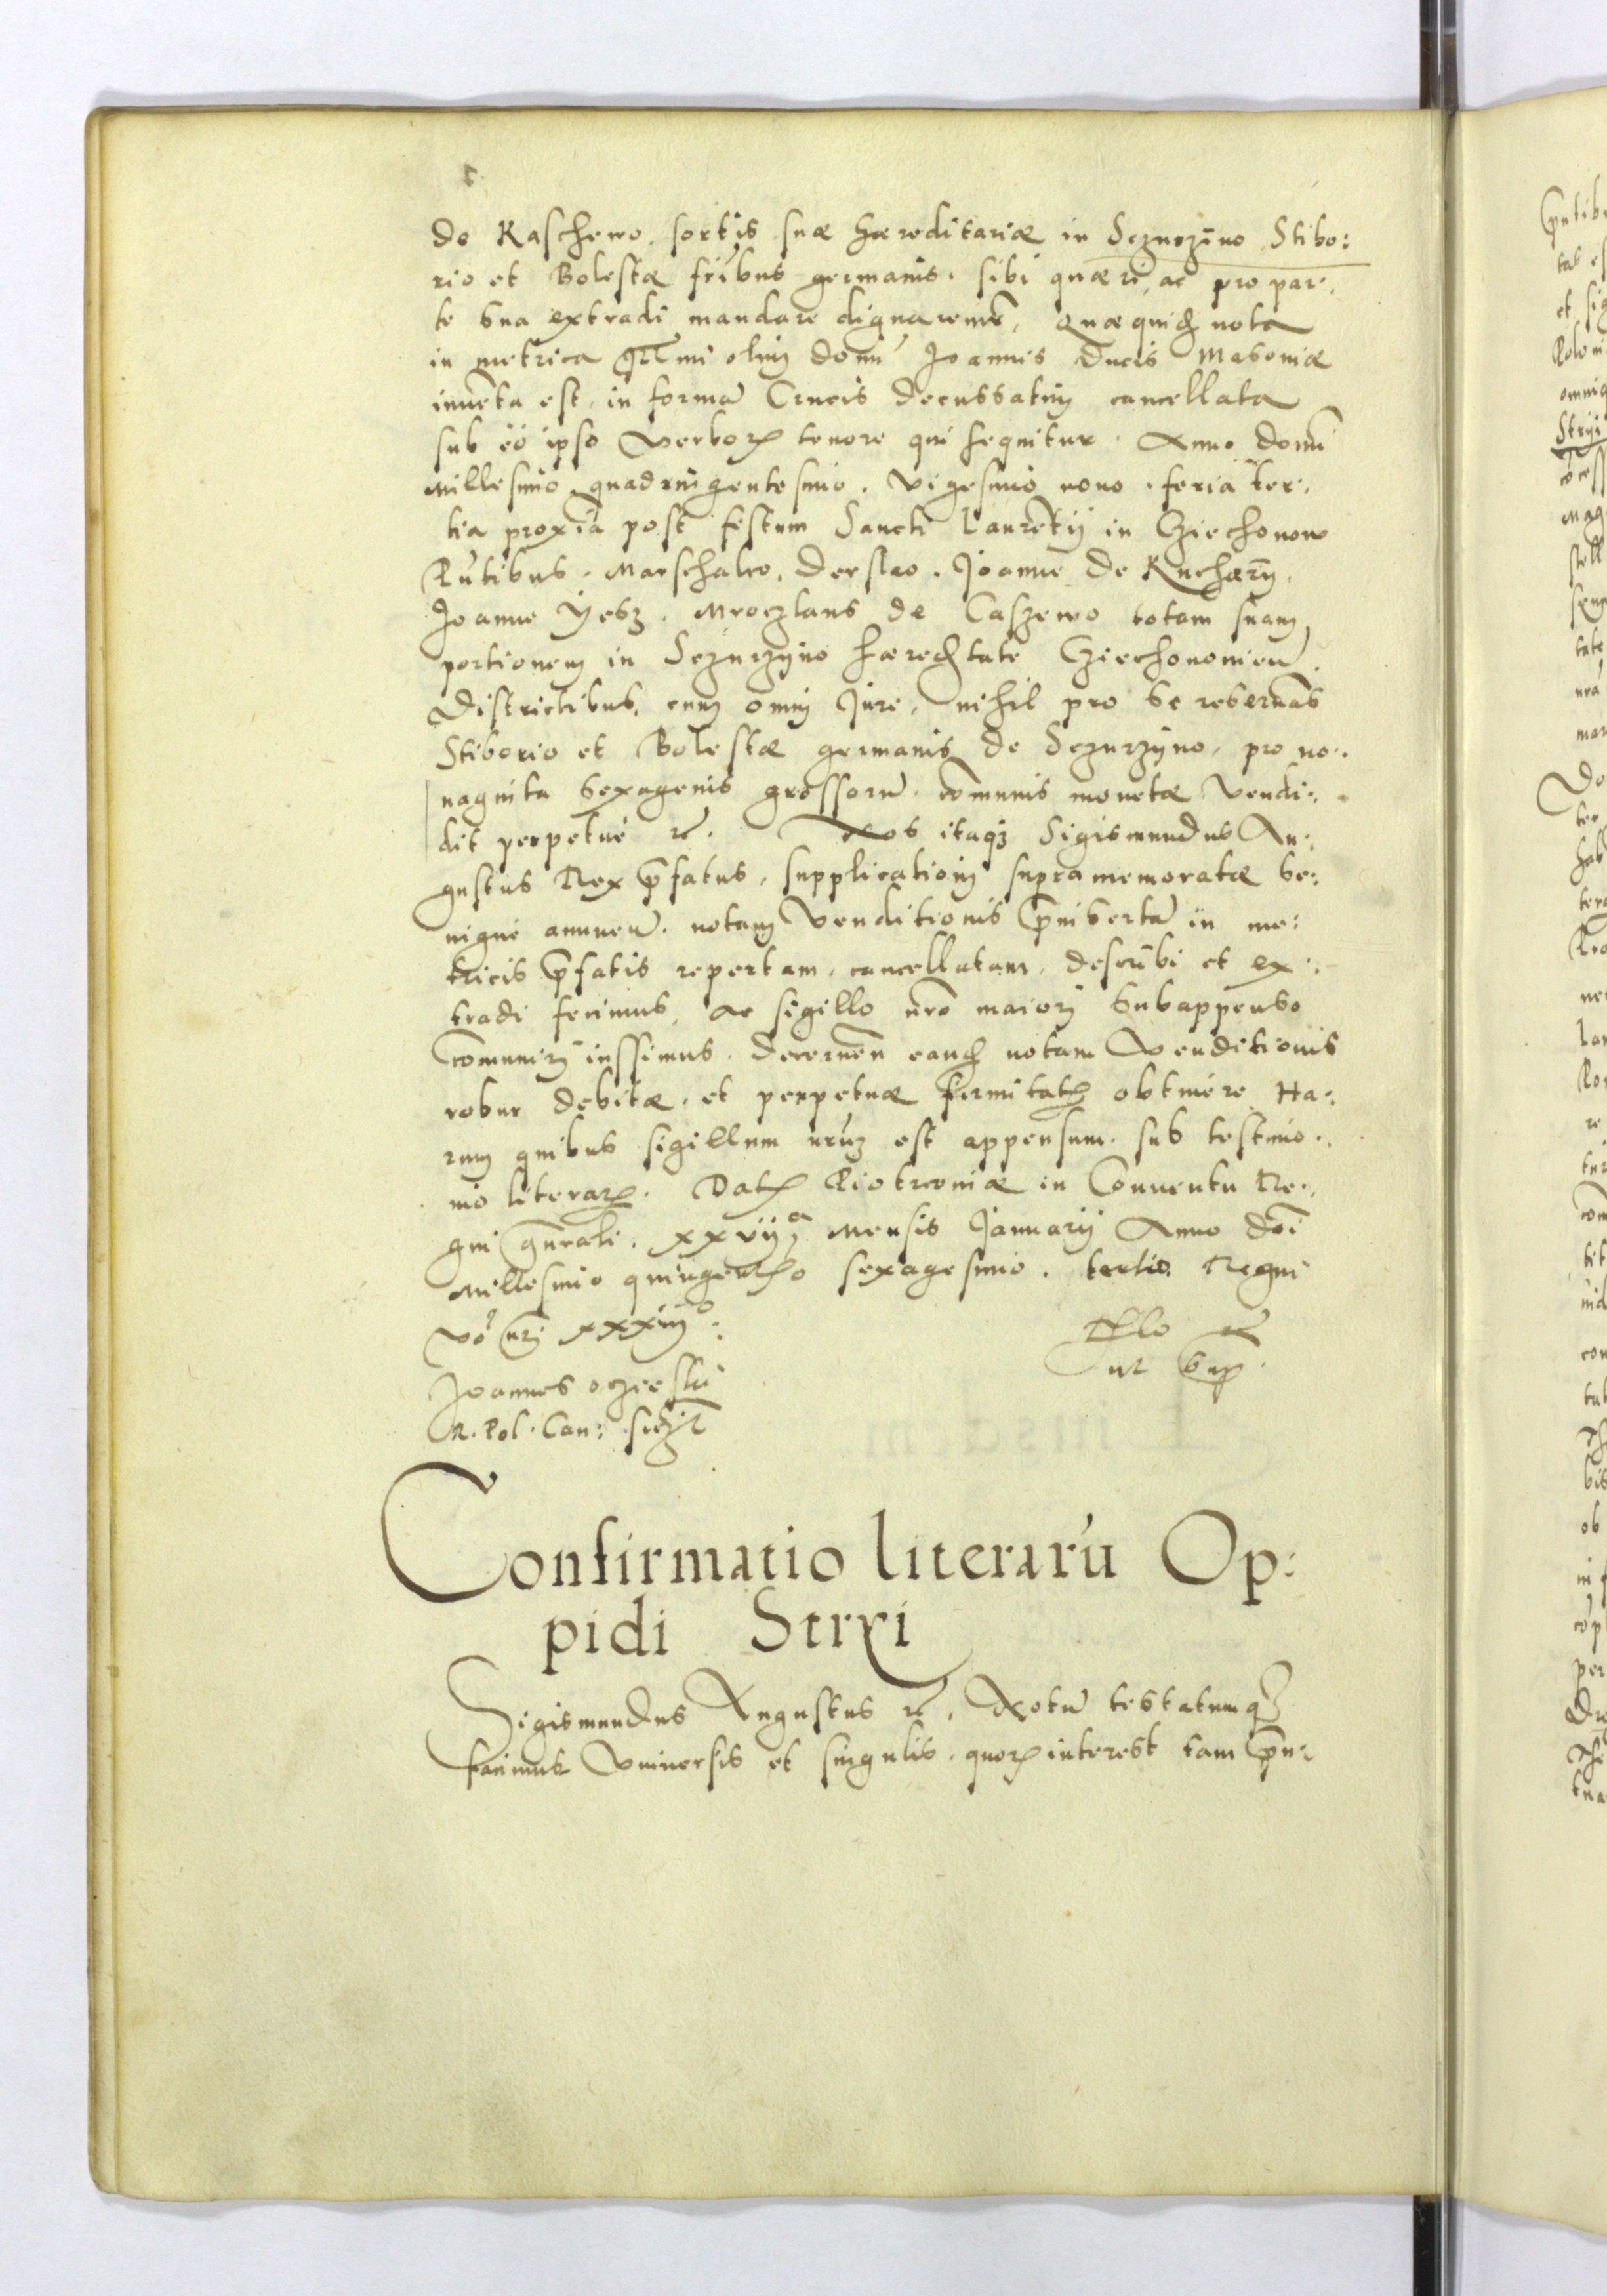 de Raschewo, sortis suæ hæreditariæ in Sczurzino Stibo:
rio et Bolestæ fribus germanis, sibi quæri, ac pro par.
te sua extradi mandare dignaremr, Quæquid nota
in metrica Illmi olim domi Joannis Ducis Masoviæ
inventa est, in formã Crucis decussatim cancellata
sub eo ipso verborũ tenore qui sequitur. Anno domi
Millesimo quadringentesimo. vigesimo nono. feria ter.
tia proxia post festum Sancti Laurẽtij in Cziechonow
Pntibus. Marschalco, Derslao. Joanne de Kucharỹ,
Joanne Yesz. Mroczlaus de Caszewo totam suam
portionem in Sczurzyno hæredtate Cziechonowien
Districtibus, cum omni Jure, nihil pro se reservãs
Stiborio et Bolestæ germanis de Sczurzyno, pro no.
naginta sexagenis grossorũ. cõmunis monetæ vendi.
dit perpetue rc. Nos itaq3 Sigismundus Au:
gustus Rex p̃fatus, supplicationi supramemoratæ be:
nigne annuen. notam venditionis p̃insertã in me:
tricis p̃fatis repertam, cancellatam, describi et ex.
tradi fecimus, ac sigillo nro maiori subappenso
cõmuniri iussimus. decernẽn eand notam venditionis
robur debitæ, et perpetuæ firmitatis obtinere Ha:
rum quibus sigillum nrum est appensum. sub testimo.
nio literarũ. Datũ Piotrcoviæ in Conventu Re.
gni gñrali. xxvij a Mensis Januarij Anno doi
Millesimo quingentmo sexagesimo. tertio. Regni
vo nri xxxiiij o.
Rlo rc
ut sup.
Joannes oczieski
R. Pol. Can: sszt
Confirmatio literarũ Op:
pidi Stryi
Sigismundus Augustus rc. Notũ testatumq3
facimus Vniversis et singulis. quorũ interest tam p̃n